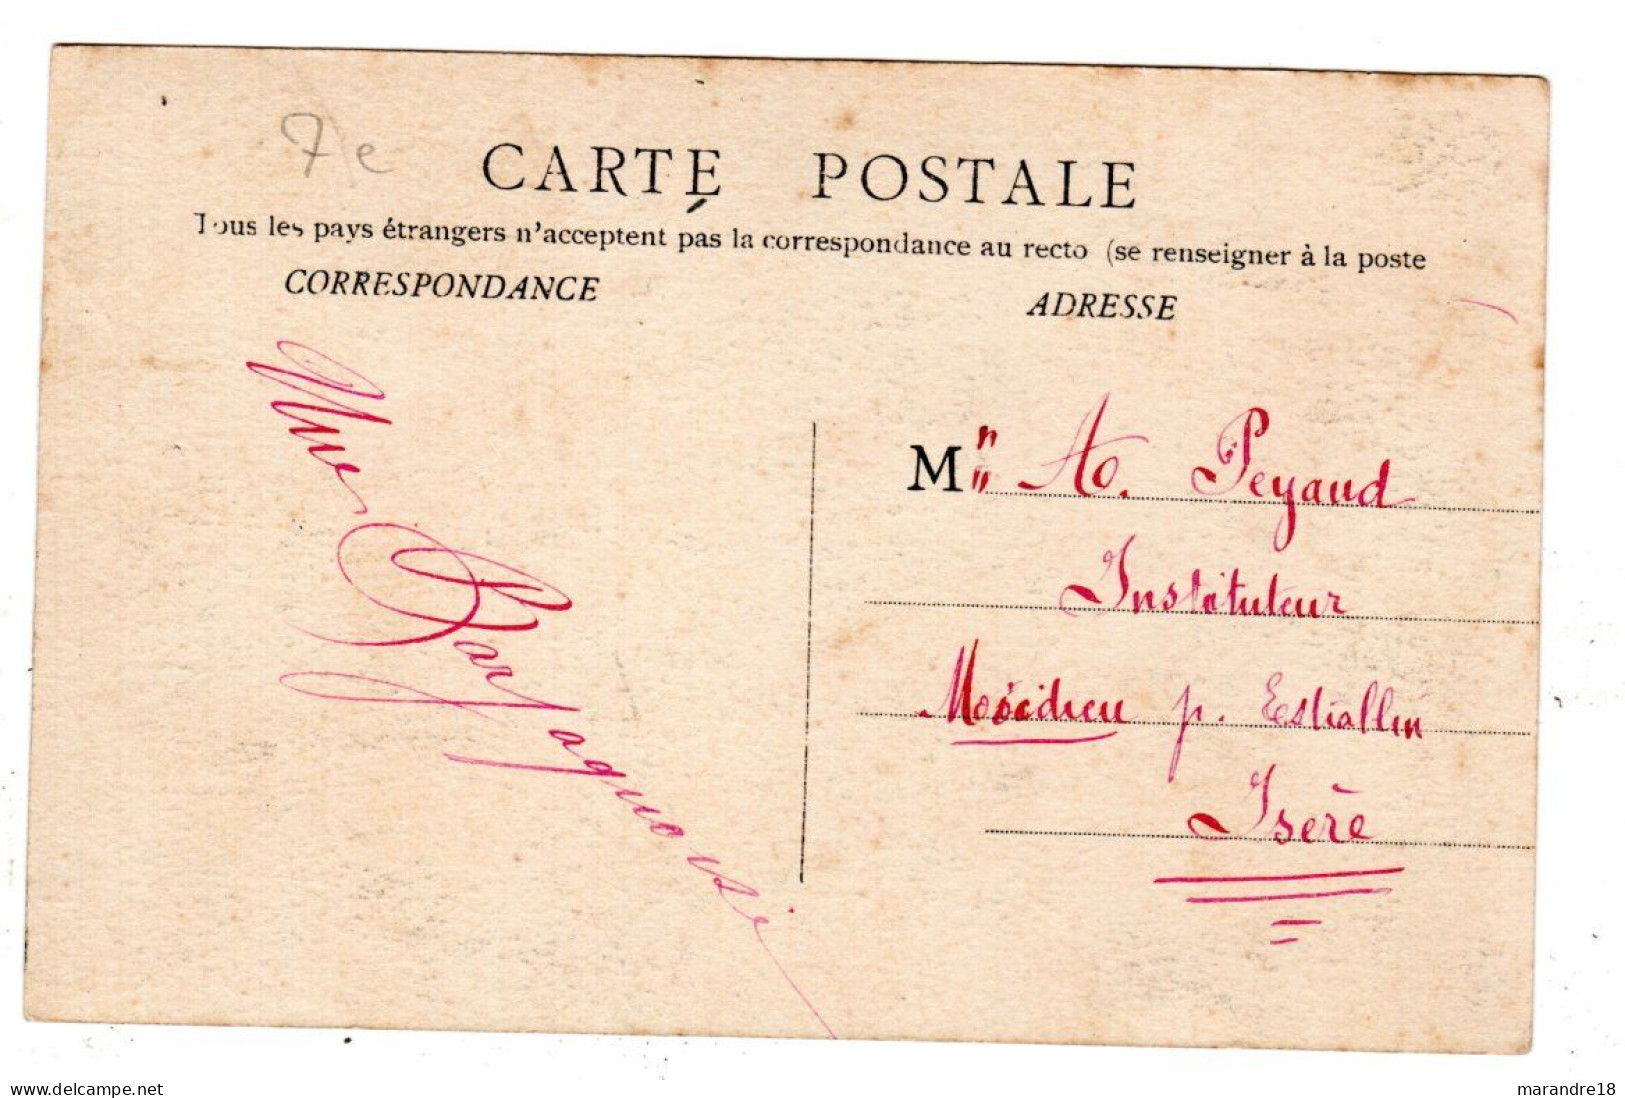 7 e
CARTE POSTALE
Tous les pays étrangers n'acceptent pas la correspondance au recto (se renseigner à la poste
CORRESPONDANCE
ADRESSE
Mme
M A. Peyaud
Instituteur
Moidieu p. Estrablin
Isère
www.delcampe.net
marandre18